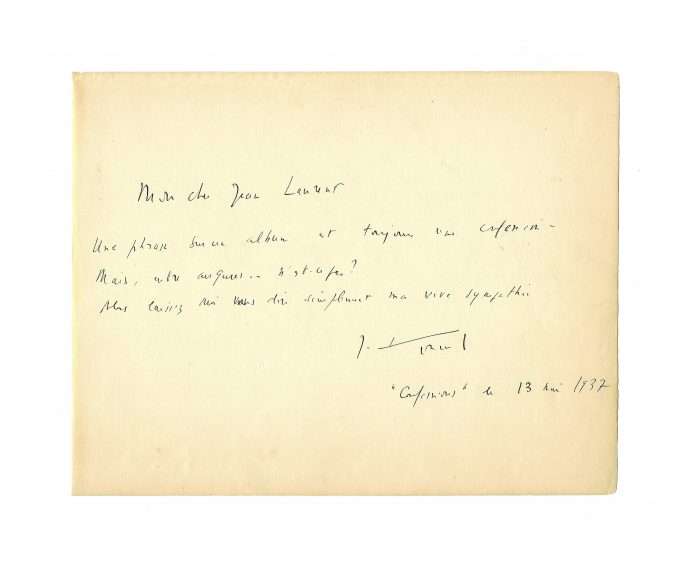 Mon cher Jean Laurent
Une phrase sur un album est toujours une confession –
Mais, entre augures... n'est-ce pas ?
Alors laissez moi vous dire simplement ma vive sympathie
J.
"Confessions" le 13 mai 1937